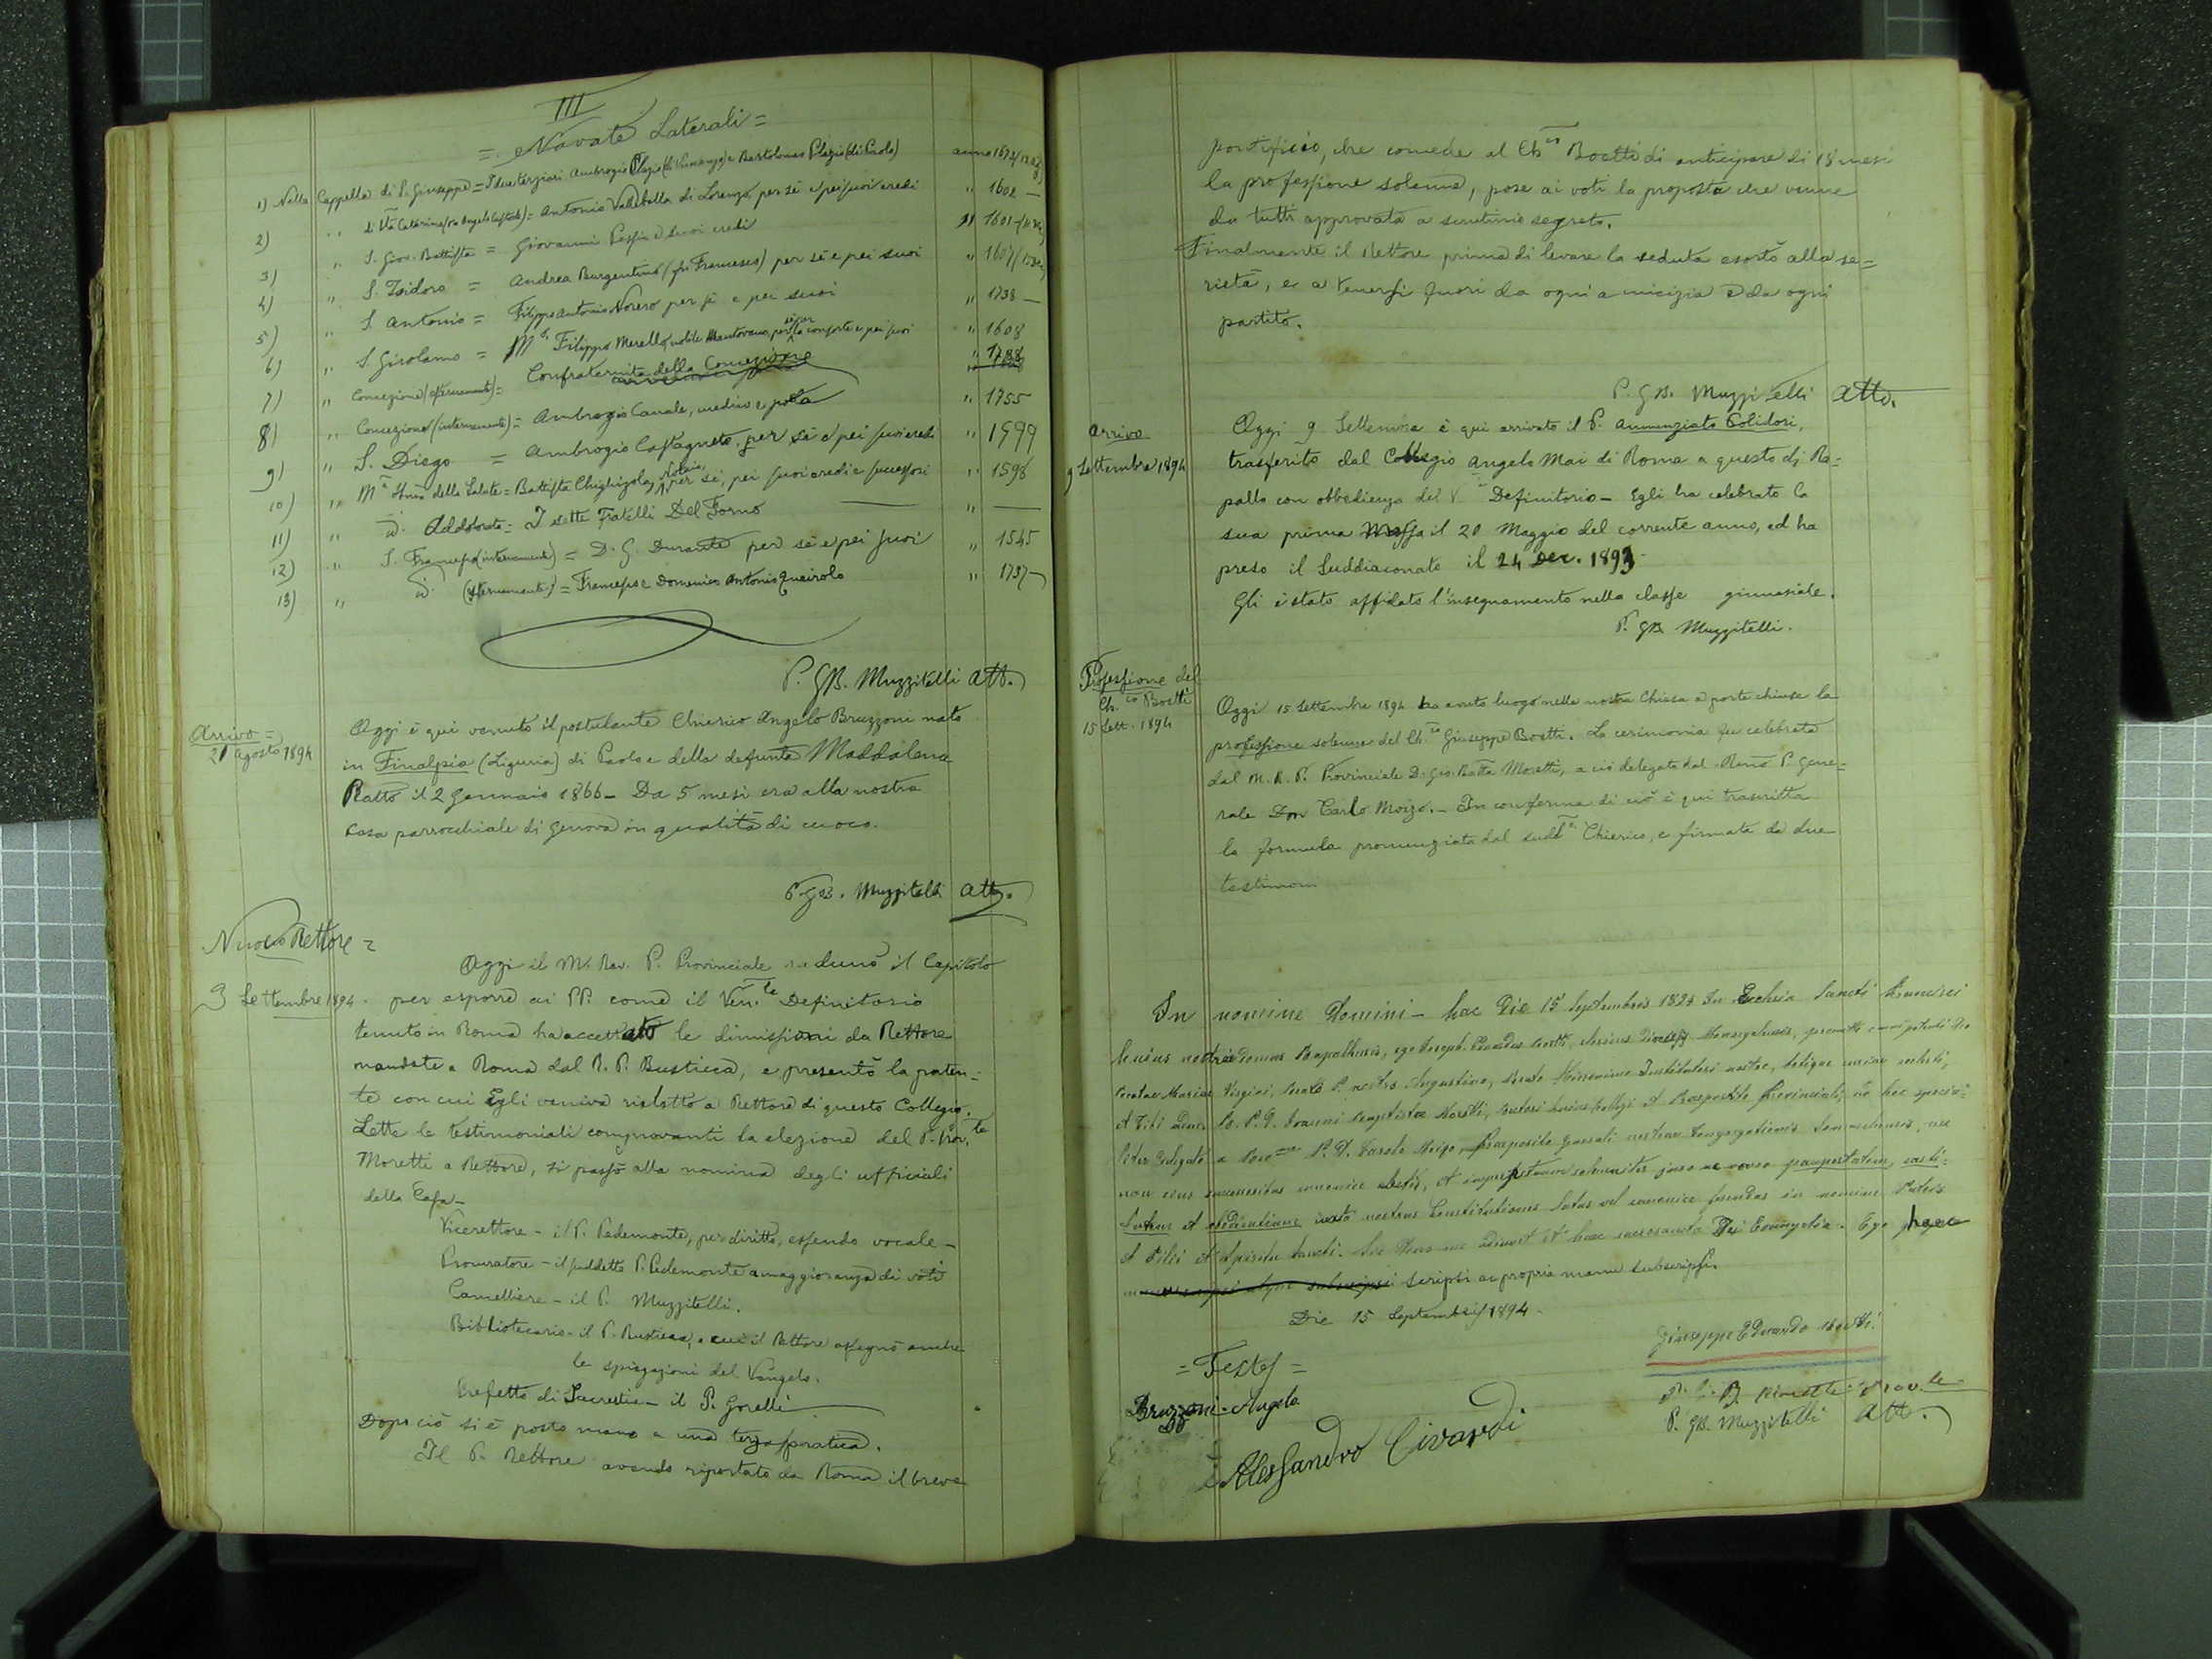 III
= Navate Laterali =
1) Nella Cappella di S. Giuseppe = I due terziari Ambrogio Plagio (di Vincenzo) e Bartolomeo Plagio (di Paolo) anno 1672
2) " di Sta Caterina (ora Angelo Custode) = Antonio Vallebella di Lorenzo, per sè e pei suoi eredi " 1602 —
3) " S. Giov. Battista = Giovanni Pessia e suoi eredi " 1601
4) " S. Isidoro = Andrea Burgentino (fu Francesco) per sè e pei suoi " 1607
5) " S. Antonio = Filippo Antonio Norero per sè e pei suoi " 1738 —
6) " S. Girolamo = Filippo Merello, nobile Mantovano, per la consorte e pei suoi " 1608
7) " Concezione (esternamente) = Confraternita della Concezione " 1788
8) " Concezione (internamente) = Ambrogio Canale, medico e poeta " 1755
9) " S. Diego = Ambrogio Castagneto, per sè e pei suoi eredi " 1599
10) " Ma Sma della Salute = Battista Chighizola, Notaio, per sè, pei suoi eredi e successori " 1598
11) " id. Addolorata = I sette Fratelli Del Forno — " —
12) " S. Francesco (internamente) = D. G. Durante per sè e pei suoi " 1545
13) " id. (esternamente) = Francesco e Domenico Antonio Queirolo " 1737
P. GB. Muzzitelli att.
Arrivo =
21 Agosto 1894
Oggi è qui venuto il postulante Chierico Angelo Bruzzoni nato
in Finalpia (Liguria) di Paolo e della defunta Maddalena
Ratto il 2 Gennaio 1866 – Da 5 mesi era alla nostra
Casa parrocchiale di Genova in qualità di cuoco.
P. GB. Muzzitelli att.
Nuovo Rettore =
3 Settembre 1894.
Oggi il M. Rev. P. Provinciale radunò il Capitolo
per esporre ai PP. come il Ven.te Definitorio
tenuto in Roma ha accettato le dimissioni da Rettore
mandate a Roma dal R. P. Busticca, e presentò la paten=
te con cui Egli veniva rieletto a Rettore di questo Collegio.
Lette le testimoniali comprovanti la elezione del P. Prov.le
Moretti a Rettore, si passò alla nomina degli ufficiali
della Casa –
Vicerettore – il P. Pedemonte, per diritto, essendo vocale –
Procuratore – il suddetto P. Pedemonte a maggioranza di voti
Cancelliere – il P. Muzzitelli.
Bibliotecario – il P. Busticca, a cui il Rettore assegnò anche
le spiegazioni del Vangelo.
Prefetto di Sacrestia – il P. Gorelli
Dopo ciò si è posto mano a una terza pratica.
Il P. Rettore avendo riportato da Roma il breve
pontificio, che concede al Ch.co Boetti di anticipare di 18 mesi
la professione solenne, pose ai voti la proposta che venne
da tutti approvata a scrutinio segreto.
Finalmente il Rettore prima di levare la seduta esortò alla se=
rietà, e a tenersi fuori da ogni amicizia e da ogni
partito.
P. GB. Muzzitelli Att.
Arrivo
9 Settembre 1894
Oggi 9 Settembre è qui arrivato il P. Annunziato Colidori,
trasferito dal Collegio Angelo Mai di Roma a questo di Ra=
pallo con obbedienza del V. Definitorio – Egli ha celebrato la
sua prima Messa il 20 Maggio del corrente anno, ed ha
preso il Suddiaconato il 24 Dec. 1893
Gli è stato affidato l'insegnamento nella classe ginnasiale.
P. GB. Muzzitelli.
Professione del
Ch.co Boetti
15 Sett. 1894
Oggi 15 Settembre 1894 ha avuto luogo nella nostra Chiesa a porte chiuse la
professione solenne del Ch.co Giuseppe Boetti. La cerimonia fu celebrata
dal M. R. P. Provinciale D. Gio. Batta Moretti, a ciò delegato dal Rmo P. Gene=
rale Don Carlo Moizo. – In conferma di ciò è qui trascritta
la formula pronunziata dal sudd.o Chierico, e firmata da due
testimoni
In nomine Domini – hac Die 15 Septembris 1894 In Ecclesia Sancti Francisci
huius nostrae domus Rapallensis, ego Joseph Boetti, clericus omnipotenti Deo
Beatae Mariae Virgini, Beato P. nostro Augustino, Beato Hieronimo Institutori nostro, totique curiae coelesti,
et Tibi P. D. Joanni Baptistae Moretti, Rectori huius Collegi et Praeposito Provinciali, ad hoc specia=
liter delegato a Rmo P. D. Carolo Moizo, Praeposito Generali nostrae Congregationis Somaschensis,
successoribus canonice electis, et in perpetuum solemniter juro ac voveo paupertatem, casti=
tatem et obedientiam iuxta nostras Constitutiones latas vel canonice ferendas in nomine Patris
et Filii et Spiritu Sancti. Sic Deus me adiuvet et haec sacrosancta Dei Evangelia. Ego haec
scripsi ac propria manu subscripsi.
Die 15 Septembris 1894 –
Giuseppe Edoardo Boetti.
= Testes =
Bruzzoni Angelo
Alessandro Civardi
P. G. B. Moretti Prov.le
P. GB. Muzzitelli Att.